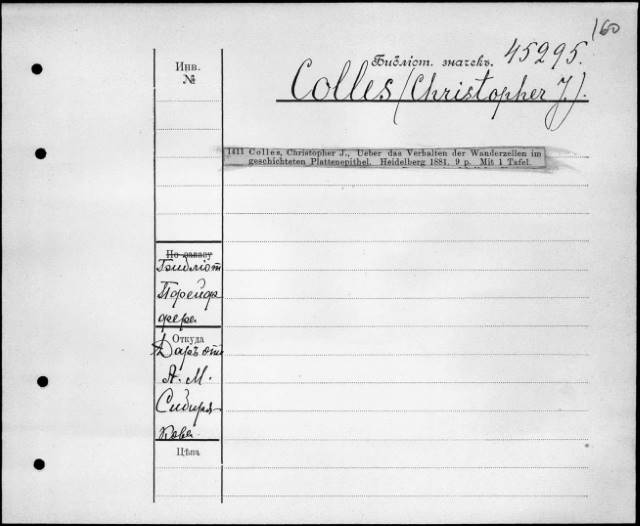 160
Библіот. значекъ. 45295.
Инв.
№
Colles (Christopher J.).
1411 Colles, Christopher J., Ueber das Verhalten der Wanderzellen im
geschichteten Plattenepithel. Heidelberg 1881. 9 p. Mit 1 Tafel.
По заказу
Библіот
Порейф
фера
Откуда
Даръ отъ
А. М.
Сибиря
кова.
Цѣна